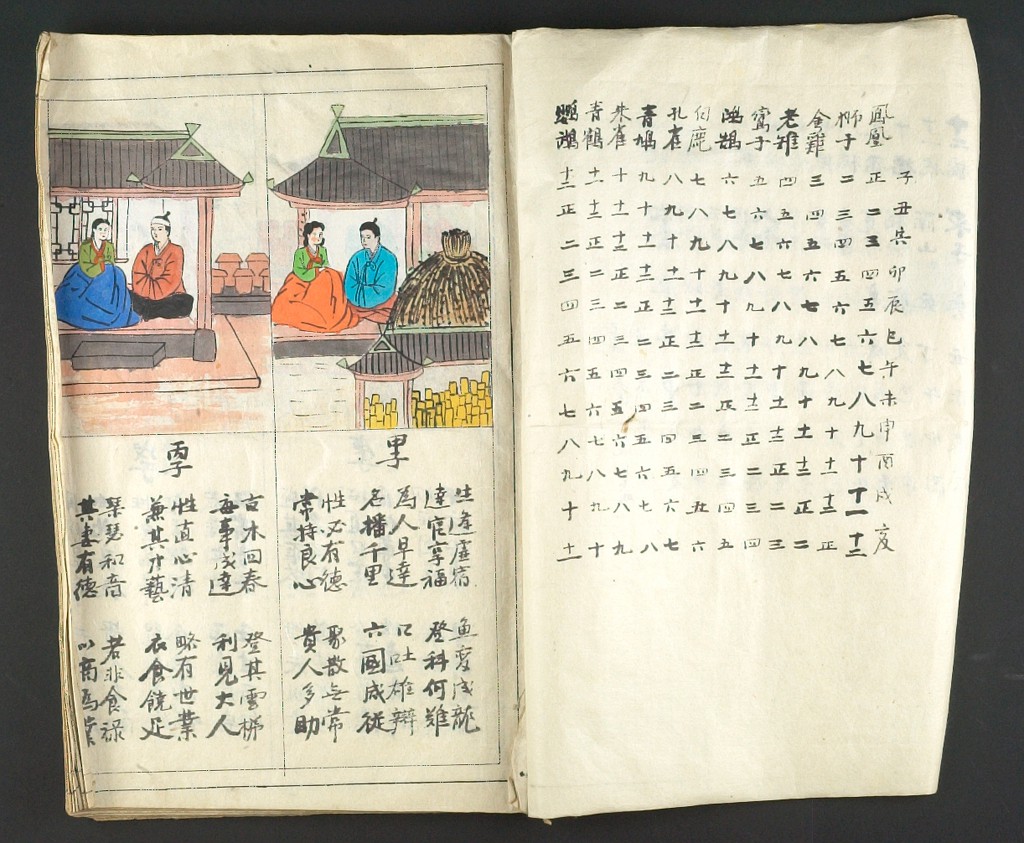 子丑寅卯辰巳午未申酉戌亥
鳳凰 正二三四五六七八九十十一十二
獅子 二三四五六七八九十十一十二正
金雞 三四五六七八九十十一十二正二
老雉 四五六七八九十十一十二正二三
鸞子 五六七八九十十一十二正二三四
鴻鵠 六七八九十十一十二正二三四五
白鹿 七八九十十一十二正二三四五六
孔雀 八九十十一十二正二三四五六七
青鳩 九十十一十二正二三四五六七八
朱雀 十十一十二正二三四五六七八九
青鶴 十一十二正二三四五六七八九十
鸚鵡 十二正二三四五六七八九十十一
生逢虛宿 魚變成龍
達官享福 登科何難
為人早達 口吐雄辯
名播千里 六國成從
性必有德 聚散无常
常持良心 貴人多助
古木回春 登其雲梯
每事成達 利見大人
性直心清 略有世業
兼其才藝 衣食饒足
琴瑟和音 若非食祿
其妻有德 以商為業